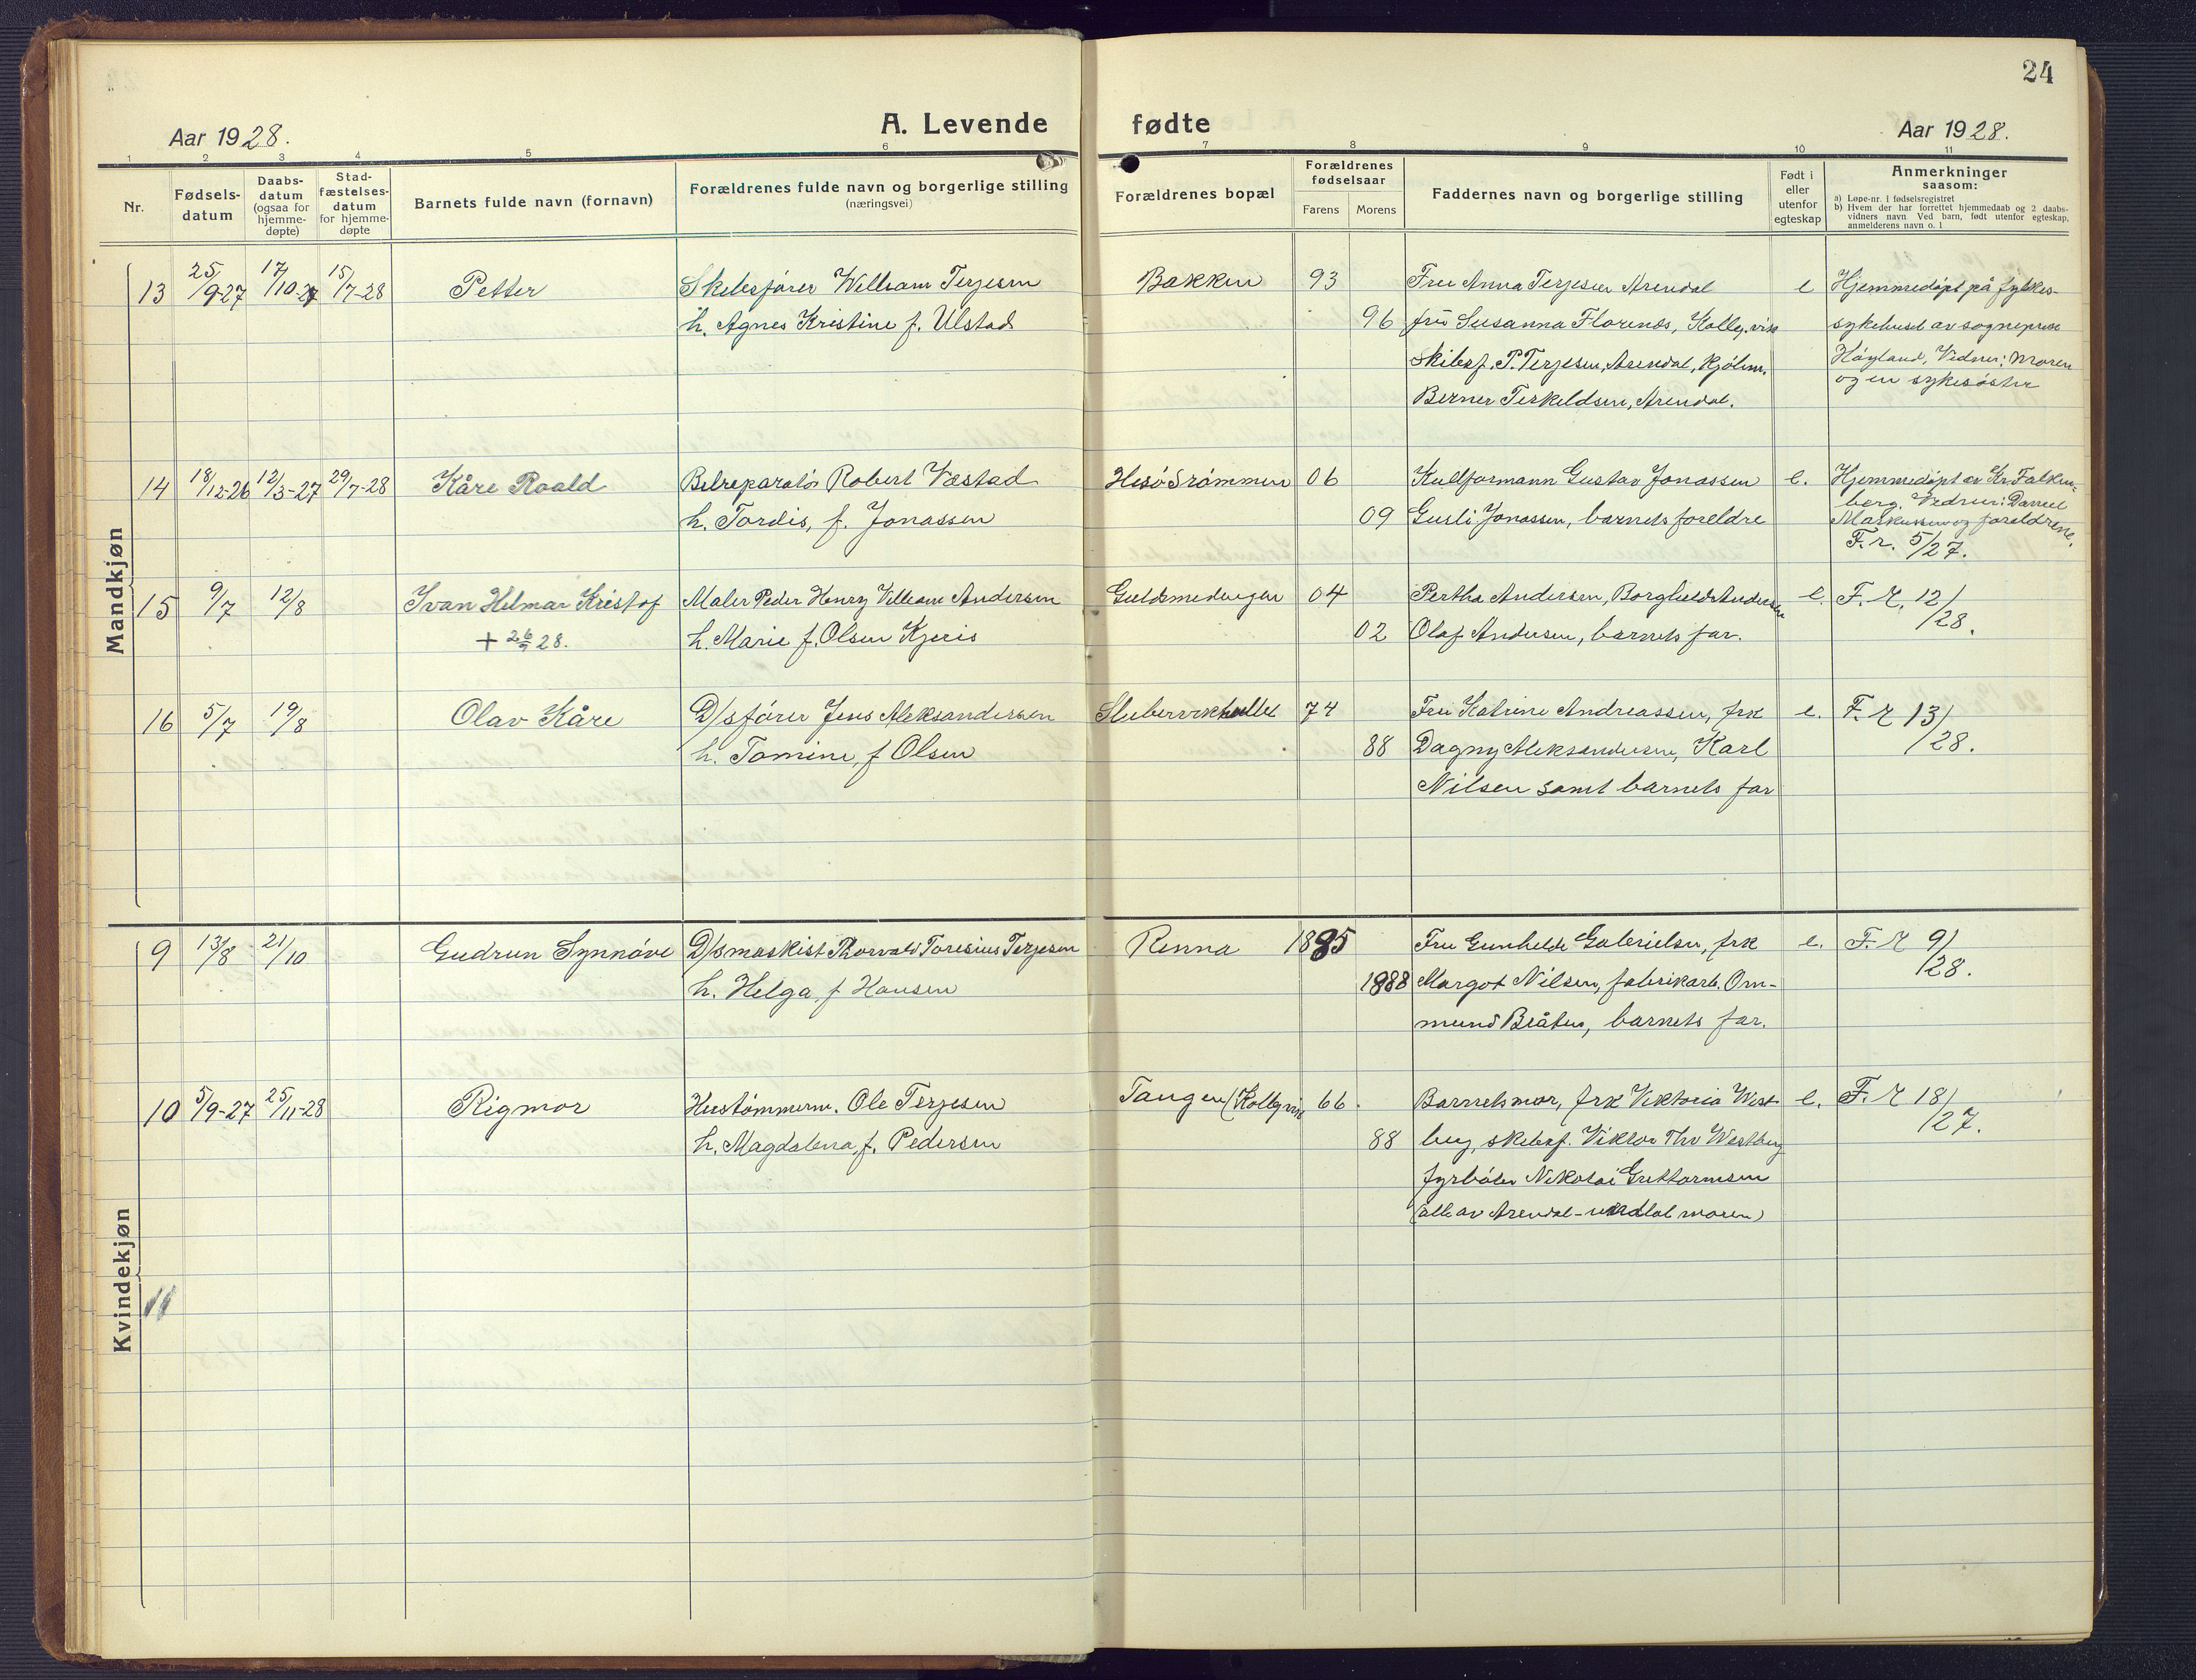 24
Aar 1928.
A. Levende fødte
Aar 1928.
1 2 3 4 5 6 7 8 9 10 11
Nr.
Fødsels-
datum
Daabs-
datum
(ogsaa for
hjemme-
døpte)
Stad-
fæstelses-
datum
for hjemme-
døpte
Barnets fulde navn (fornavn)
Forældrenes fulde navn og borgerlige stilling
(næringsvei)
Forældrenes bopæl
Forældrenes
fødselsaar
Farens Morens
Faddernes navn og borgerlige stilling
Født i
eller
utenfor
egteskap
Anmerkninger
saasom:
a) Løpe-nr. i fødselsregistret
b) Hvem der har forrettet hjemmedaab og 2 daabs-
vidners navn. Ved barn, født utenfor egteskap,
anmelderens navn o. l
Mandkjøn
13 25/9-27 17/10-27 15/7-28 Petter Skibsfører William Terjesen Bakken 93 Fru Anna Terjesen Arendal e Hjemmedøpt på fylkes-
h. Agnes Kristine f. Ulstad 96 frü Susanna Florenœs, Kolbj.vik sykehuset av sogneprest
Skibsf. P. Terjesen, Arendal, Kjølm. Høyland, Vidner: Moren
Berner Terkeldsen, Arendal. og en sykesøster
14 18/12-26 12/3-27 29/7-28 Kåre Roald Bilreparatör Robert Væstad Hisö Strømmen 06 Kullformann Gustav Jonassen e. Hjemmedøpt av Kr. Falken-
h. Tordis, f. Jonassen 09 Gusli Jonassen, barnets foreldre berg. Vidner: Daniel
Markussen og foreldrene.
F. r. 5/27.
15 9/7 12/8 Ivan Helmar Kristof Maler Peder Henry Villiam Andersen Guldsmedengen 04 Pertha Andersen, Borghild Andersen e. F. R. 12/28.
+ 26/9 28. h. Marie f. Olsen Kjeris 02 Olaf Andersen, barnets far.
16 5/7 19/8 Olav Kåre D/sfører Jens Aleksandersen 74 Fru Katrine Andreassen, frk e. F. R 13/28.
h. Tomine, f Olsen 88 Dagny Aleksandersen, Karl
Nilsen samt barnets far
Kvindekjøn
9 13/8 21/10 Gudrun Synnøve D/smaskist Thorvald Toresius Terjesen Renna 1885 Fru Gunhilde Gabrielsen, frk e. F. R 9/28.
h. Helga, f Hansen 1888 Margot Nilsen, fabrikarb. Orn-
mund Bråten, barnets far.
10 5/9-27 25/11-28 Rigmor Hustømmerm. Ole Terjesen Tangen (Kolbj.vik 66. Barnets mor, frk Viktoria West- e. F. R 18/27.
h. Magdalena, f. Pedersen 88 berg, skibsf. Viktor Thv Westberg
fyrbøter Nikolai Guttormsen
(alle av Arendal - undtat moren)
11